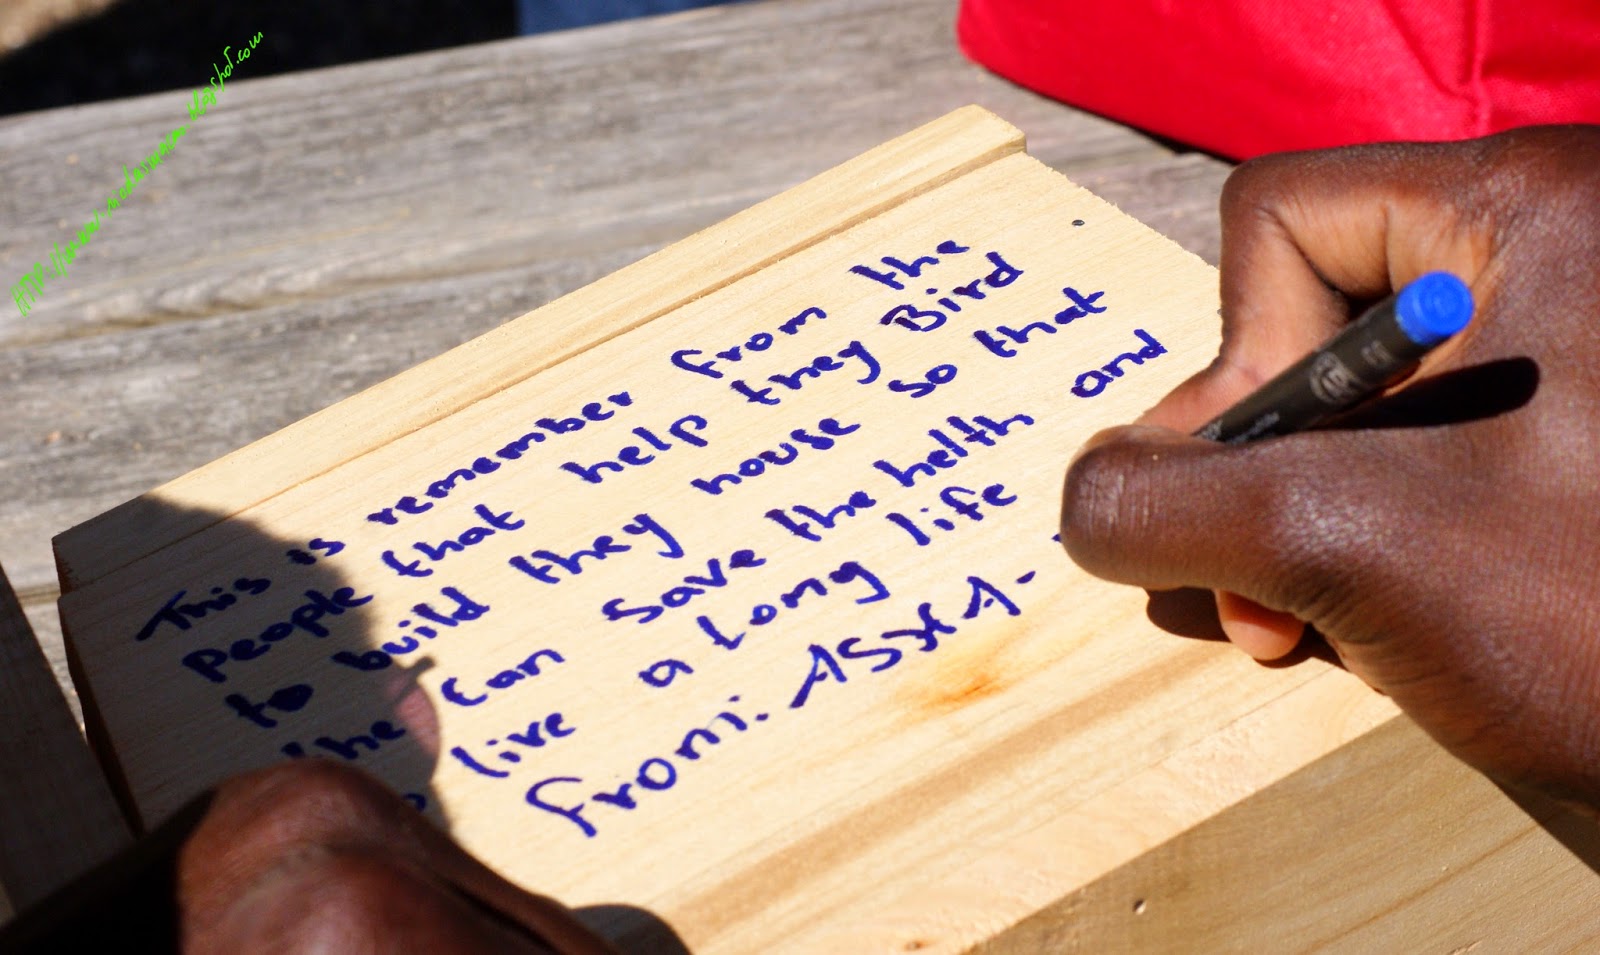 This is remember from the
people that help they Bird
to build they house so that
can save the helth and
live a long life
From: ASHA-